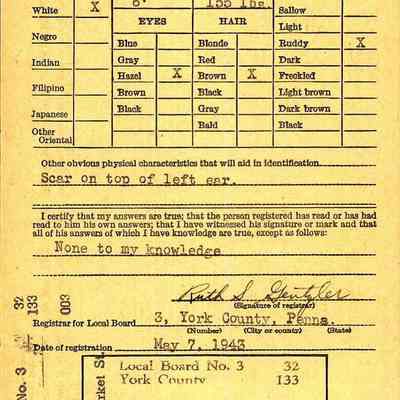 White X 6' 155 lbs. Sallow
EYES HAIR Light
Negro Blue Blonde Ruddy X
Indian Gray Red Dark
Filipino Hazel X Brown X Freckled
Brown Black Light brown
Japanese Black Gray Dark brown
Other Oriental Bald Black
Other obvious physical characteristics that will aid in identification
Scar on top of left ear.
I certify that my answers are true; that the person registered has read or has had
read to him his own answers; that I have witnessed his signature or mark and that
all of his answers of which I have knowledge are true, except as follows:
None to my knowledge
Ruth S. Gentzler
(Signature of registrar)
Registrar for Local Board 3, York County, Penna.
(Number) (City or county) (State)
Date of registration May 7, 1943
Local Board No. 3 32
York County 133
32
133
003
No. 3
rket St.